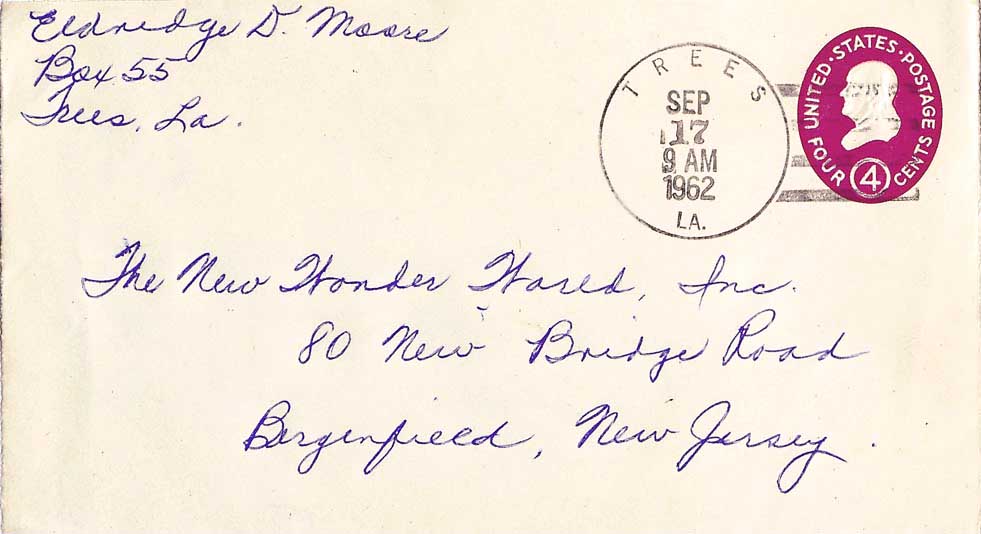 Eldredge D. Moore
Box 55
Trees, La.
TREES
SEP
17
9 AM
1962
LA.
UNITED·STATES·POSTAGE
FOUR 4 CENTS
The New Wonder World, Inc.
80 New Bridge Road
Bergenfield, New Jersey.